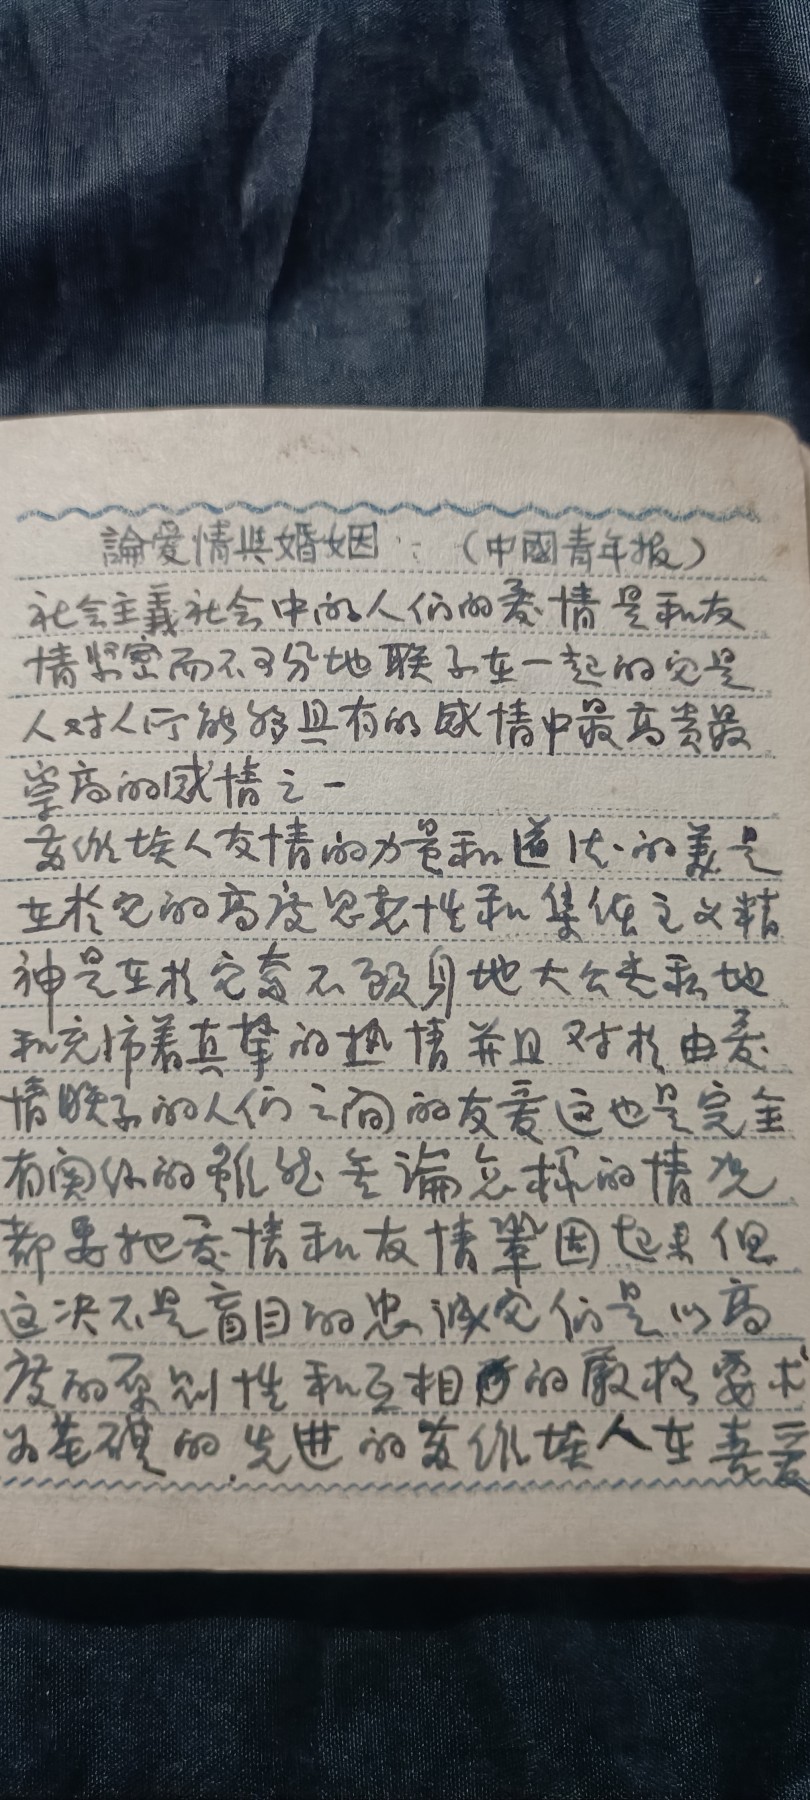 論愛情與婚姻：（中國青年报）
社会主義社会中的人们的爱情是和友
情紧密而不可分地联系在一起的它是
人对人所能够具有的感情中最高贵最
崇高的感情之一
苏维埃人友情的力量和道法的美是
在於它的高度思想性和集体主义精
神是在於它奋不顾身地大公无私地
和充沛着真挚的热情并且对於由爱
情联系的人们之间的友爱这也是完全
有関係的虽然无論怎样的情况
都要把爱情和友情鞏固起来但
这决不是盲目的忠诚它们是以高
度的原则性和互相的严格要求
为基礎的先进的苏维埃人在喜爱